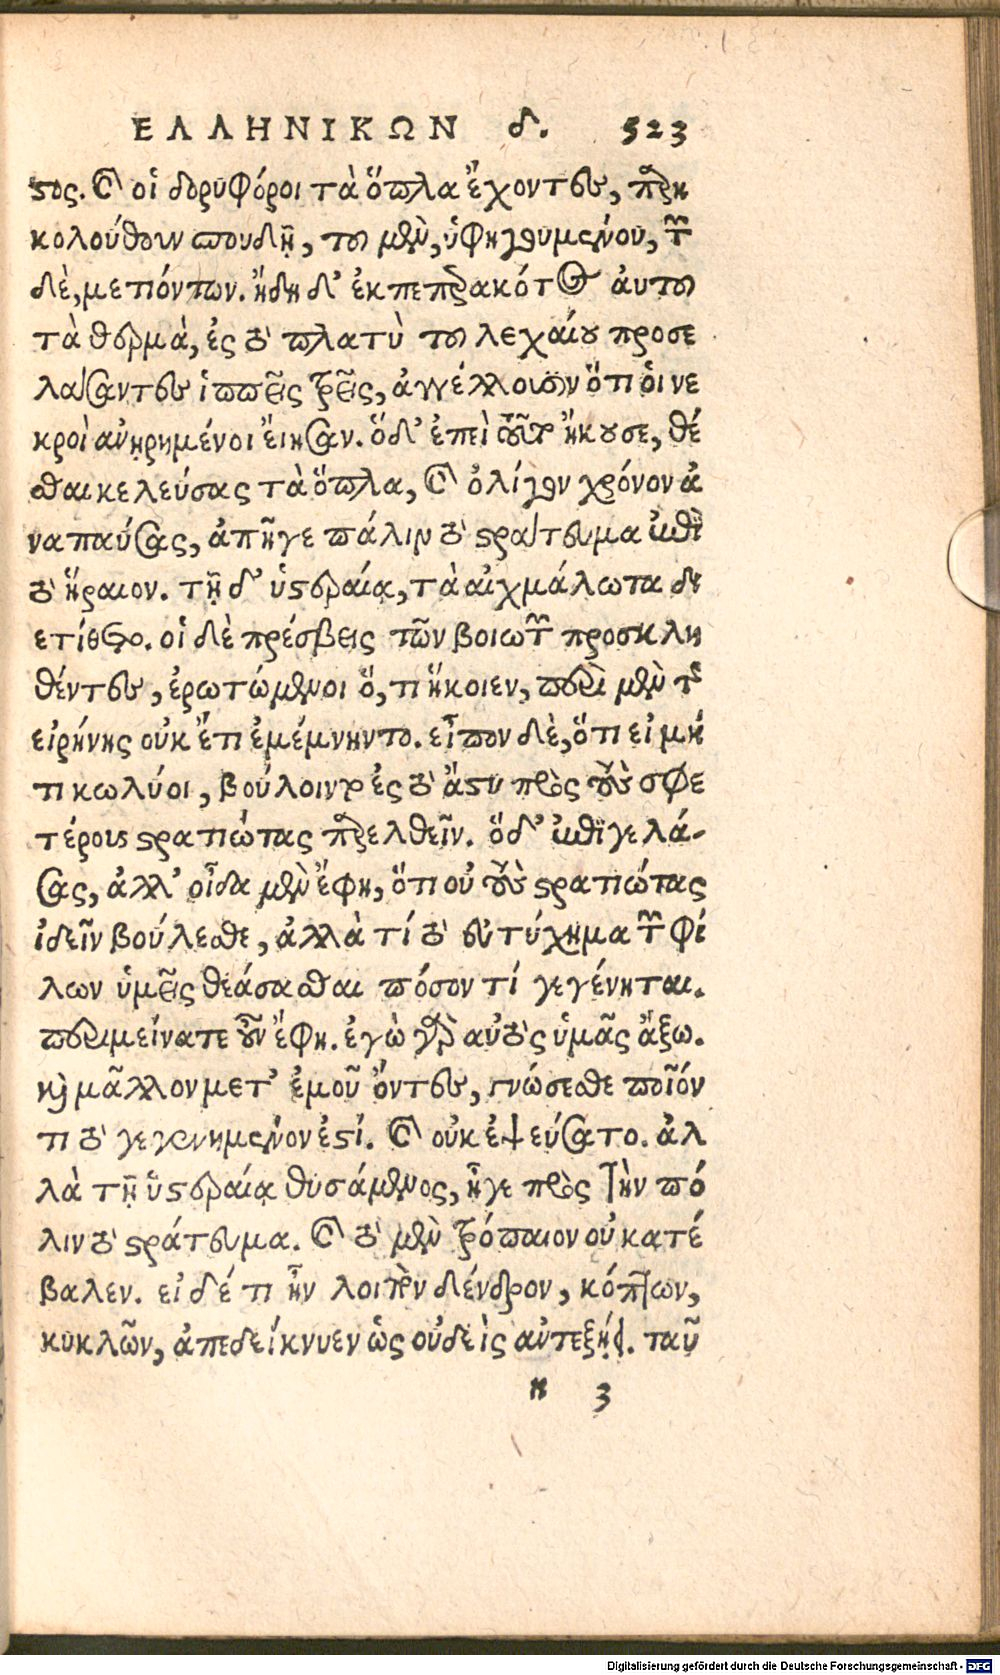 ΕΛΛΗΝΙΚΩΝ δ. 523
στος. καὶ οἱ δορυφόροι τὰ ὅπλα ἔχοντες, παρη
κολούθουν σπουδῇ, του μὲν, ὑφηγουμένου, τῶν
δὲ, μετιόντων. ἤδη δ' ἐκπεπερακότος ἀυτου
τὰ θερμὰ, ἐς τὸ πλατὺ του λεχαίου προσε
λάσαντες ἱππεῖς τρεῖς, ἀγγέλλουσιν ὅτι ὁι νε
κροὶ ἀνῃρημένοι ἔιησαν. ὅδ' ἐπεὶ τοῦτο ἤκουσε, θέ
σθαι κελεύσας τὰ ὅπλα, καὶ ὀλίγον χρόνον ἀ
ναπαύσας, ἀπῆγε πάλιν τὸ στράτευμα ἐπὶ
τὸ ἥραιον. τῇ δ' ὑστεραίᾳ, τὰ αἰχμάλωτα δι
ετίθετο. οἱ δὲ πρέσβεις τῶν βοιωτῶν προσκλη
θέντες, ἐρωτώμενοι ὅ, τι ἥκοιεν, περὶ μὲν τῆς
εἰρήνης οὐκ ἔτι ἐμέμνηντο. εἶπον δὲ, ὅτι εἰ μή
τι κωλύοι, βούλοιντο ἐς τὸ ἄστυ πρὸς τοὺς σφε
τέρους στρατιώτας παρελθεῖν. ὅδ' ἐπιγελά-
σας, ἀλλ' οἶδα μὲν ἔφη, ὅτι οὐ τοὺς στρατιώτας
ἰδεῖν βούλεσθε, ἀλλὰ τί τὸ εὐτύχημα τῶν φί
λων ὑμεῖς θεάσασθαι πόσον τί γεγένηται.
περιμείνατε οὖν ἔφη. ἐγὼ γὰρ αὐτὸς ὑμᾶς ἄξω.
καὶ μᾶλλον μετ' ἐμοῦ ὄντες, γνώσεσθε ποῖόν
τι τὸ γεγενημένον ἐστί. καὶ οὐκ ἐψεύσατο. ἀλ
λὰ τῇ ὑστεραίᾳ θυσάμενος, ἦγε πρὸς τὴν πό
λιν τὸ στράτευμα. καὶ τὸ μὲν τρόπαιον οὐ κατέ
βαλεν. εἰ δέ τι ἦν λοιπὸν δένδρον, κόπτων,
κυκλῶν, ἀπεδείκνυεν ὡς οὐδεὶς ἀυτεξῄει. ταῦ
κ 3
Digitalisierung gefördert durch die Deutsche Forschungsgemeinschaft - DFG